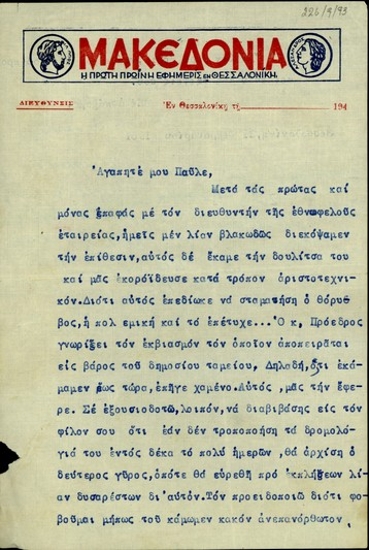 226/9/93
ΜΑΚΕΔΟΝΙΑ
Η ΠΡΩΤΗ ΠΡΩΙΝΗ ΕΦΗΜΕΡΙΣ ΕΝ ΘΕΣΣΑΛΟΝΙΚΗ
ΔΙΕΥΘΥΝΣΙΣ
Ἐν Θεσσαλονίκῃ τῇ 194
Ἀγαπητέ μου Παῦλε,
Μετά τάς πρώτας καί
μόνας ἐπαφάς μέ τόν διευθυντήν τῆς ἐθνωφελοῦς
ἑταιρείας,ἡμεῖς μέν λίαν βλακωδῶς διεκόψαμεν
τήν ἐπίθεσιν,αὐτός δέ ἔκαμε τήν δουλίτσα του
καί μᾶς ἐκορόϊδευσε κατά τρόπον ἀριστοτεχνι-
κόν.Διότι αὐτός ἐπεδίωκε νά σταματήση ὁ θόρυ-
βος,ἡ πολ εμική καί τό ἐπέτυχε...Ὁ κ, Πρόεδρος
γνωρίζει τόν ἐκβιασμόν τόν ὁποῖον ἀποπειρᾶται
εἰς βάρος τοῦ δημοσίου ταμείου, Δηλαδή,ὅτι ἐκά-
μαμεν ἕως τώρα,ἐπῆγε χαμένο.Αὐτός ,μᾶς τήν ἔφε-
ρε. Σέ ἐξουσιοδοτῶ,λοιπόν,νά διαβιβάσης εἰς τόν
φίλον σου ὅτι ἐάν δέν τροποποήση τά δρομολό-
γιά του ἐντός δέκα τό πολύ ἡμερῶν ,θά ἀρχίση ὁ
δεύτερος γῦρος,ὁπότε θά εὑρεθῆ πρό ἐκπλήξεων λί-
αν δυσαρέστων δι'αὐτόν.Τόν προειδοποιῶ διότι φο-
βοῦμαι μήπως τοῦ κάμωμεν κακόν ἀνεπανόρθωτον